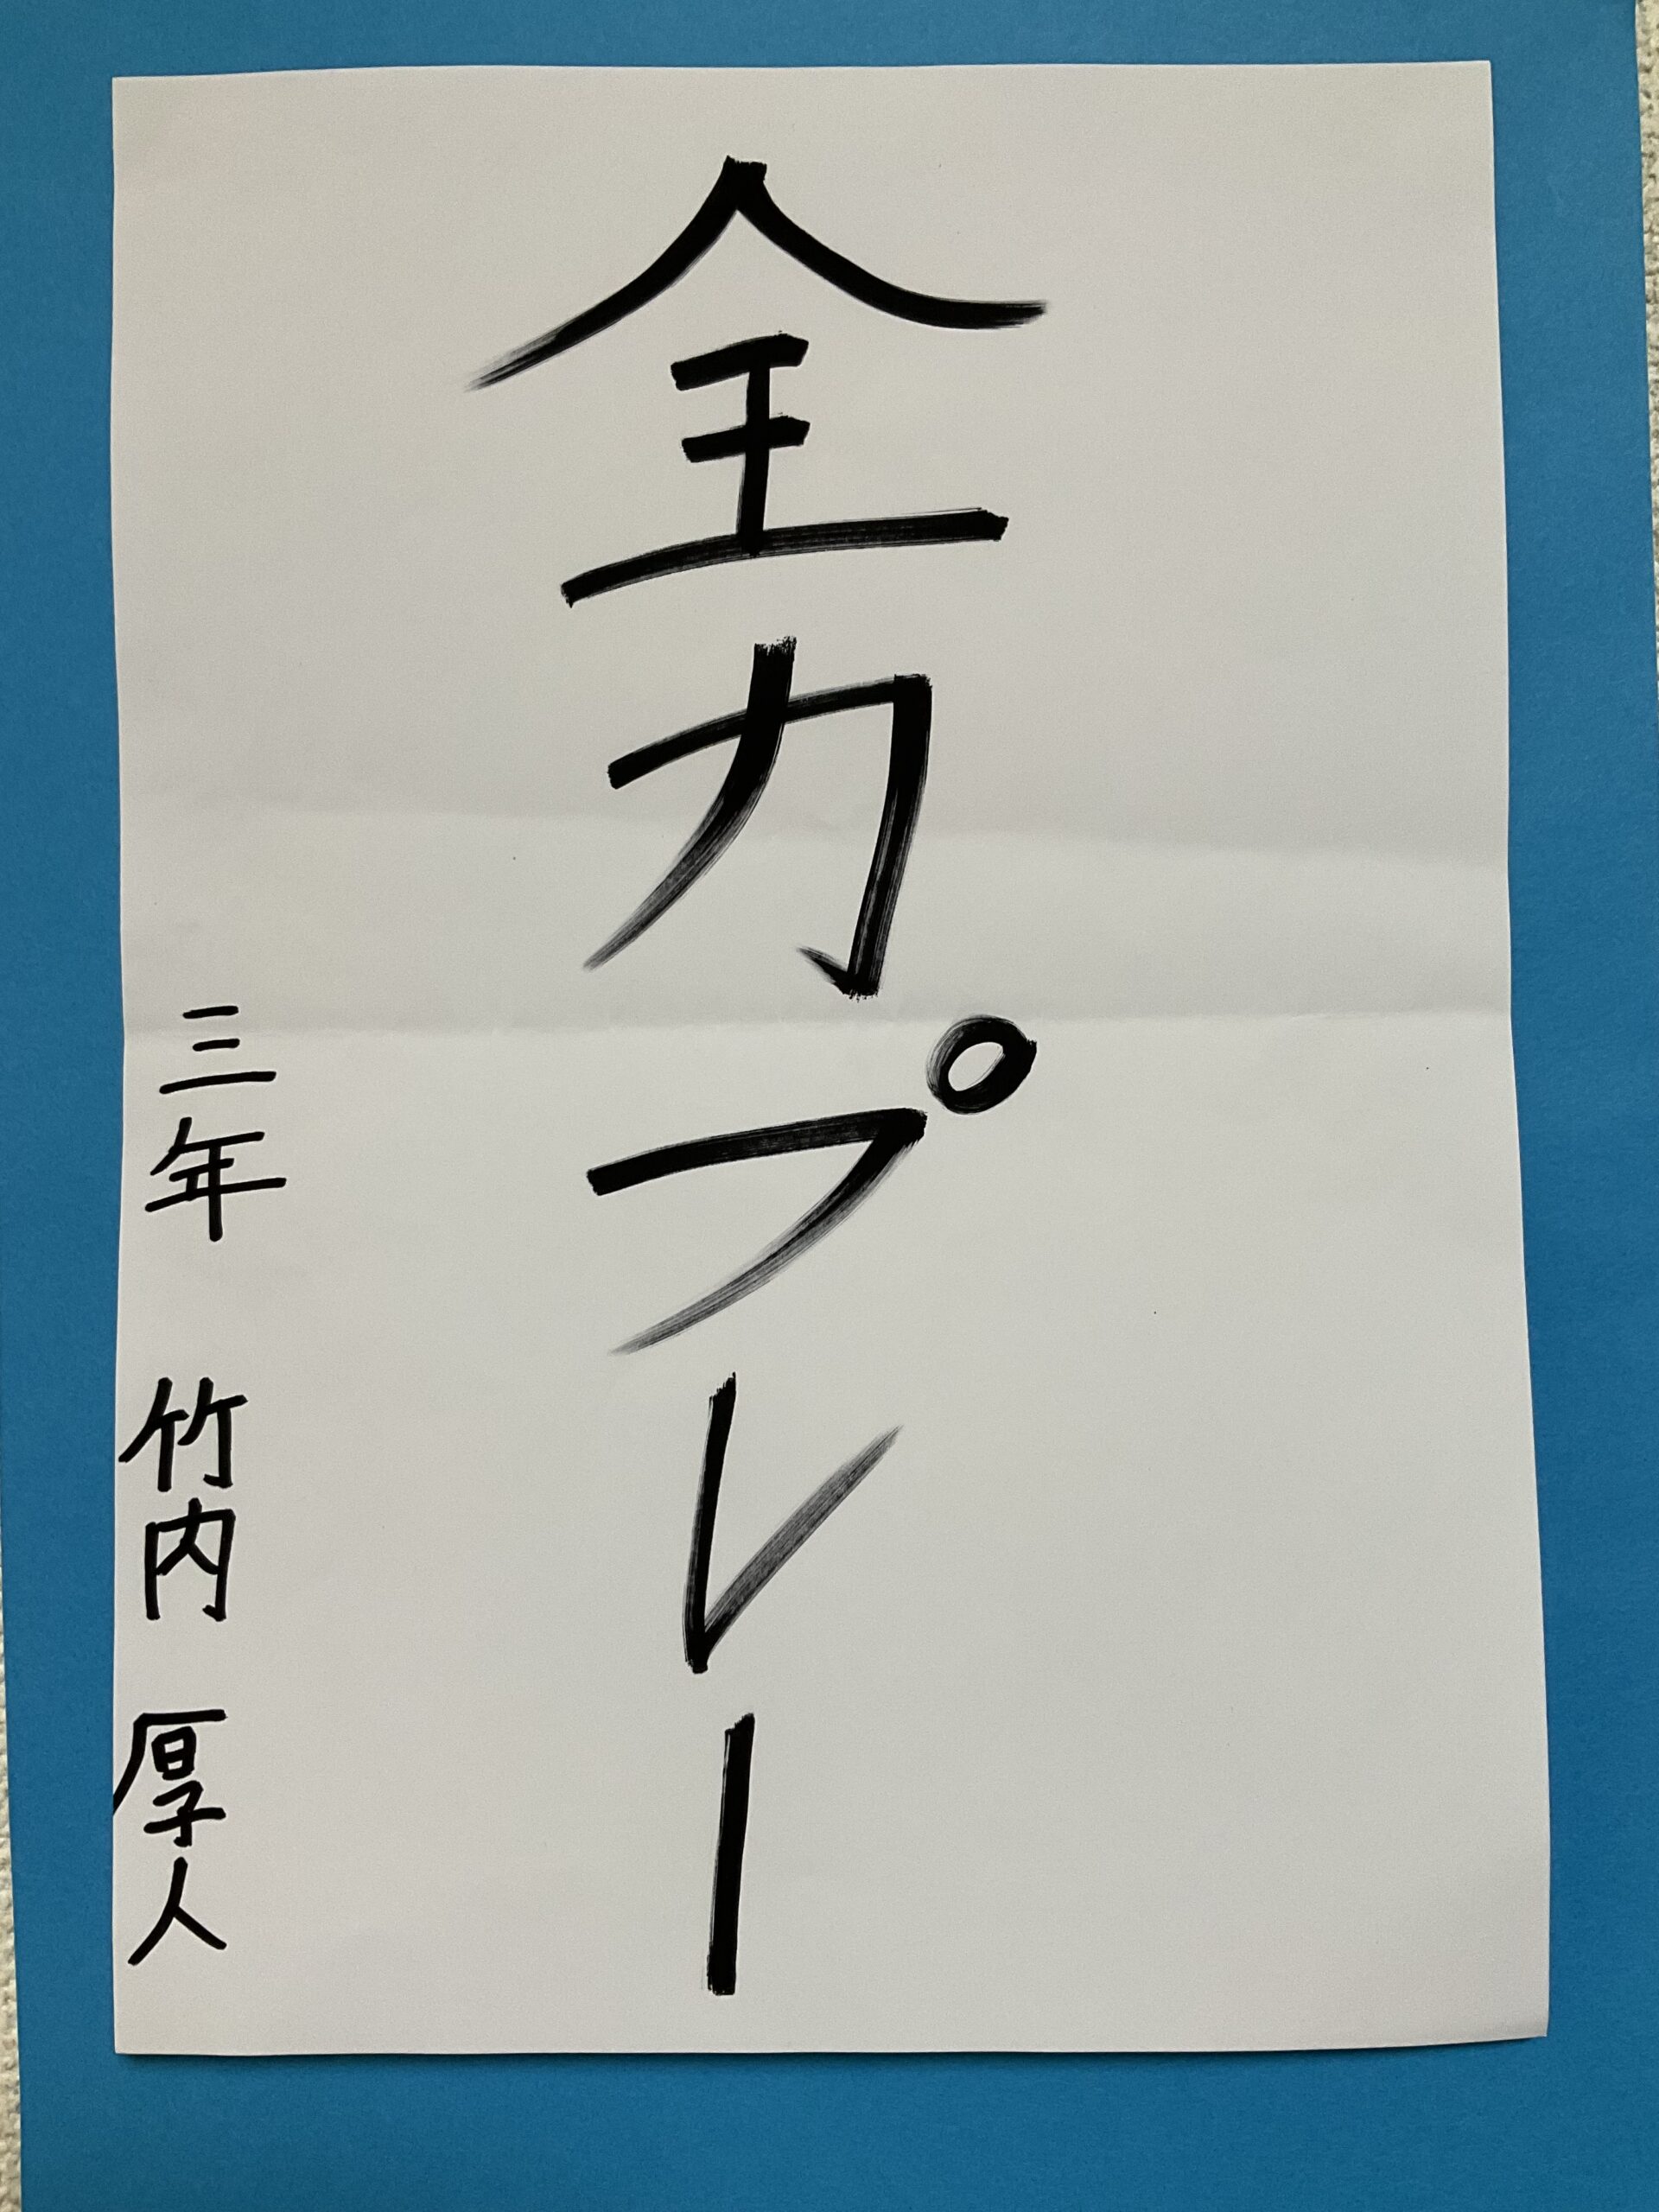 全力プレー
三年 竹内 厚人